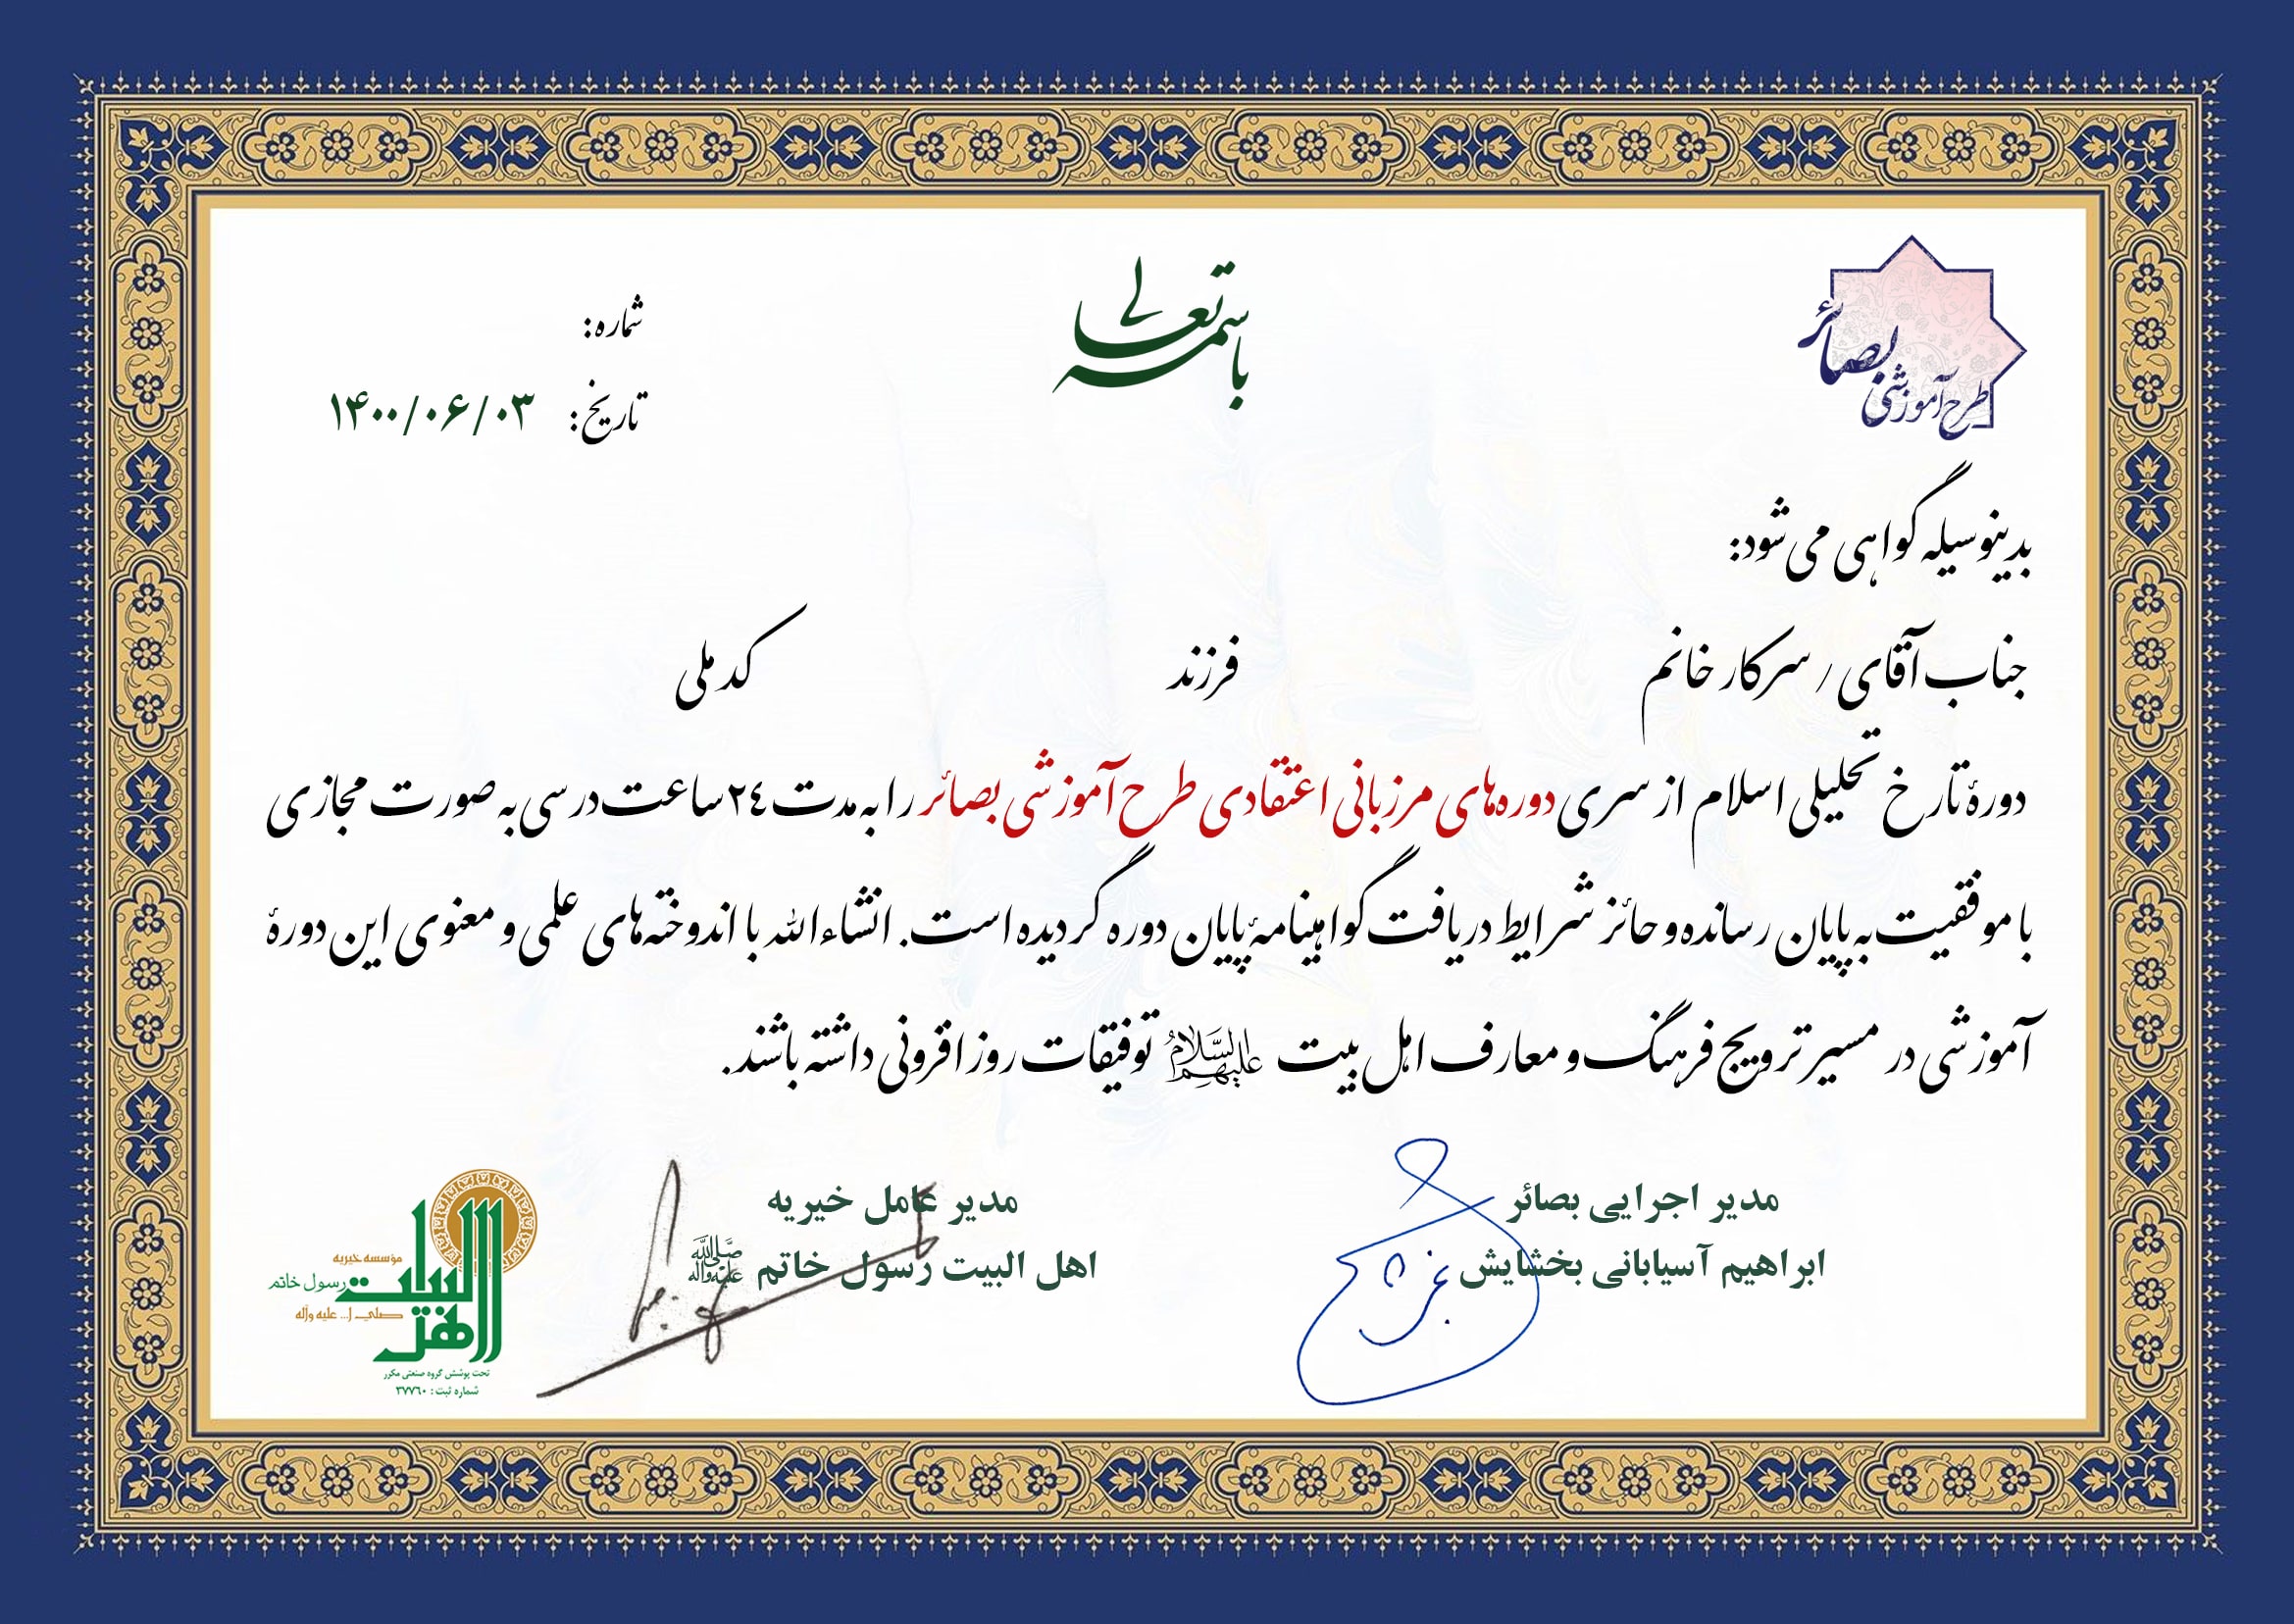 باسمه تعالی
طرح آموزشی بصائر
شماره:
تاریخ: ۱۴۰۰/۰۶/۰۳
بدینوسیله گواهی می شود:
جناب آقای / سرکار خانم فرزند کد ملی
دورهٔ تاریخ تحلیلی اسلام از سری دوره‌های مرزبانی اعتقادی طرح آموزشی بصائر را به مدت ۲٤ ساعت درسی به صورت مجازی
با موفقیت به پایان رسانده و حائز شرایط دریافت گواهینامهٔ پایان دوره گردیده است. انشاءالله با اندوخته‌های علمی و معنوی این دورهٔ
آموزشی در مسیر ترویج فرهنگ و معارف اهل بیت علیهم السلام توفیقات روز افزونی داشته باشند.
مدیر اجرایی بصائر
ابراهیم آسیابانی بخشایش
مدیر عامل خیریه
اهل البیت رسول خاتم صلی الله علیه وآله
مؤسسه خیریه
اهل البیت
رسول خاتم
صلی ا... علیه وآله
تحت پوشش گروه صنعتی مکرر
شماره ثبت : ۳۷۷۶۰